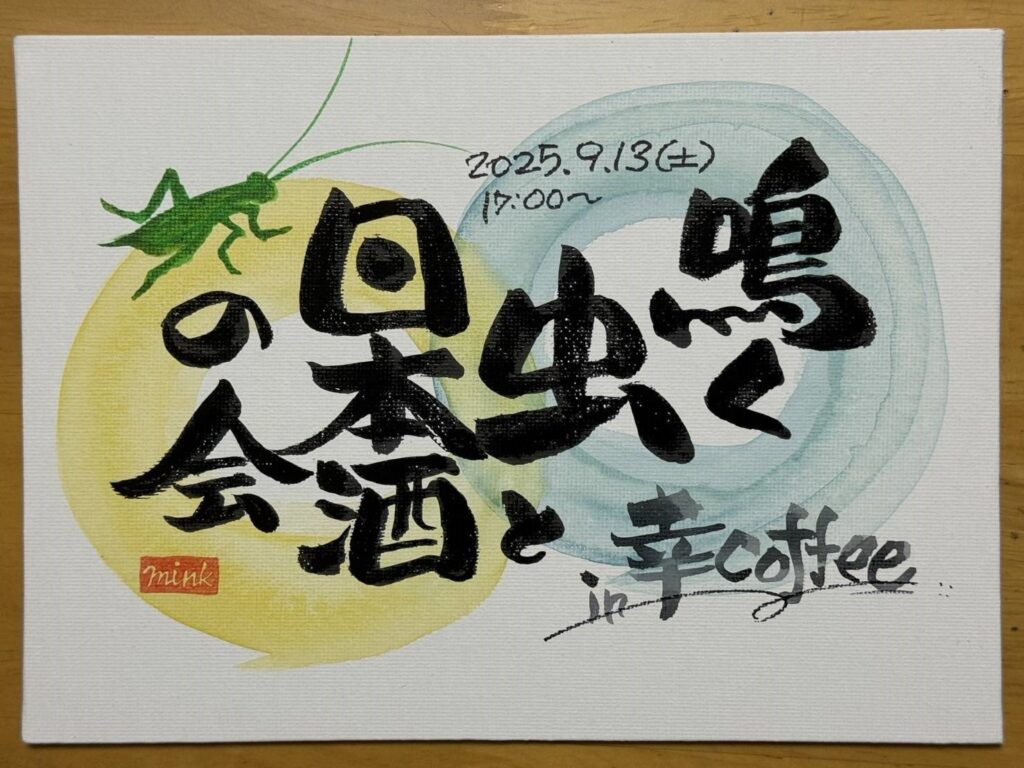 2025.9.13(土)
17:00〜
鳴く
虫と
日本酒
の会
in 幸coffee
mink